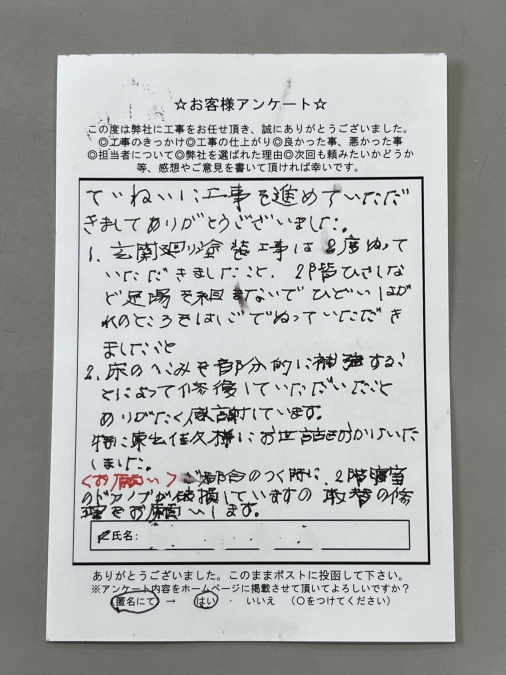 ☆お客様アンケート☆
この度は弊社に工事をお任せ頂き、誠にありがとうございました。
◎工事のきっかけ◎工事の仕上がり◎良かった事、悪かった事
◎担当者について◎弊社を選ばれた理由◎次回も頼みたいかどうか
等、感想やご意見を書いて頂ければ幸いです。
ていねいに工事を進めていただだ
きましてありがとうございました。
1. 玄関廻り塗装工事は2度ぬって
いただきましたこと、2階ひさしな
ど足場を組まないでひどいはが
れのところをはしごでぬっていただき
ましたこと
2. 床のへこみを部分的に補強するこ
とによって修復していただいたこと
ありがたく感謝しています。
特に東出佳久様にお世話をおかけいた
しました。
〈お願い〉ご都合のつく際に、2階寝室
のドアノブが破損していますの取替の修
理をお願いします。
氏名:
ありがとうございました。このままポストに投函して下さい。
※アンケート内容をホームページに掲載させて頂いてよろしいですか?
匿名にて → はい ・ いいえ (○をつけてください)